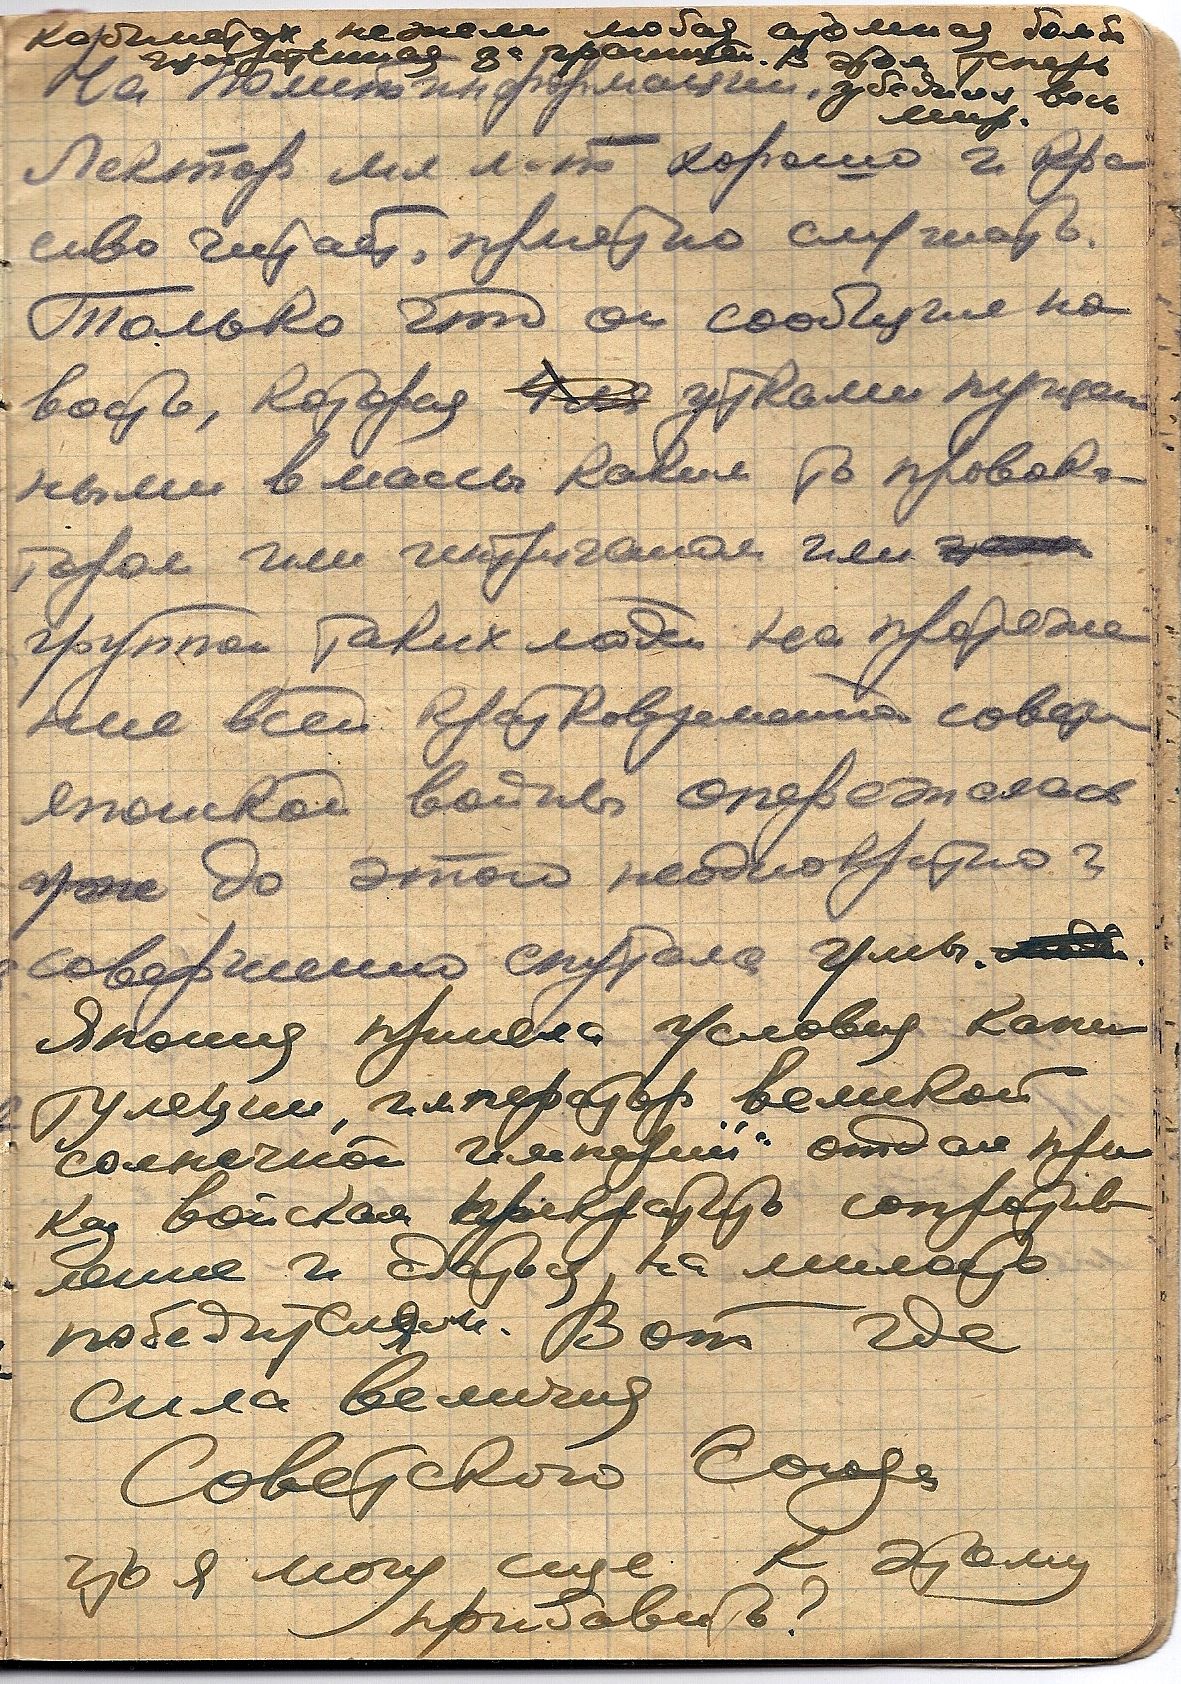 нежели любая атомная бомба
за границей. В этом теперь
На Политинформации. убедился весь
мир.
Лектор хорошо и кра
сиво читает, приятно слушать.
Только что он сообщил но
вость, которая утками пущен
ными в массы каким то провока
тором или интриганом или
группой таких людей на протяже
нии всей кратковременной советско
японской войны опережалась
уже до этого неоднократно и
совершенно спутала умы.
Япония приняла условия капи
туляции, император великой
солнечной империи" отдал при
каз войскам прекратить сопротив
ление и сдаться на милость
победителям. Вот где
сила величия
Советского Союза
что я могу еще к этому
прибавить?